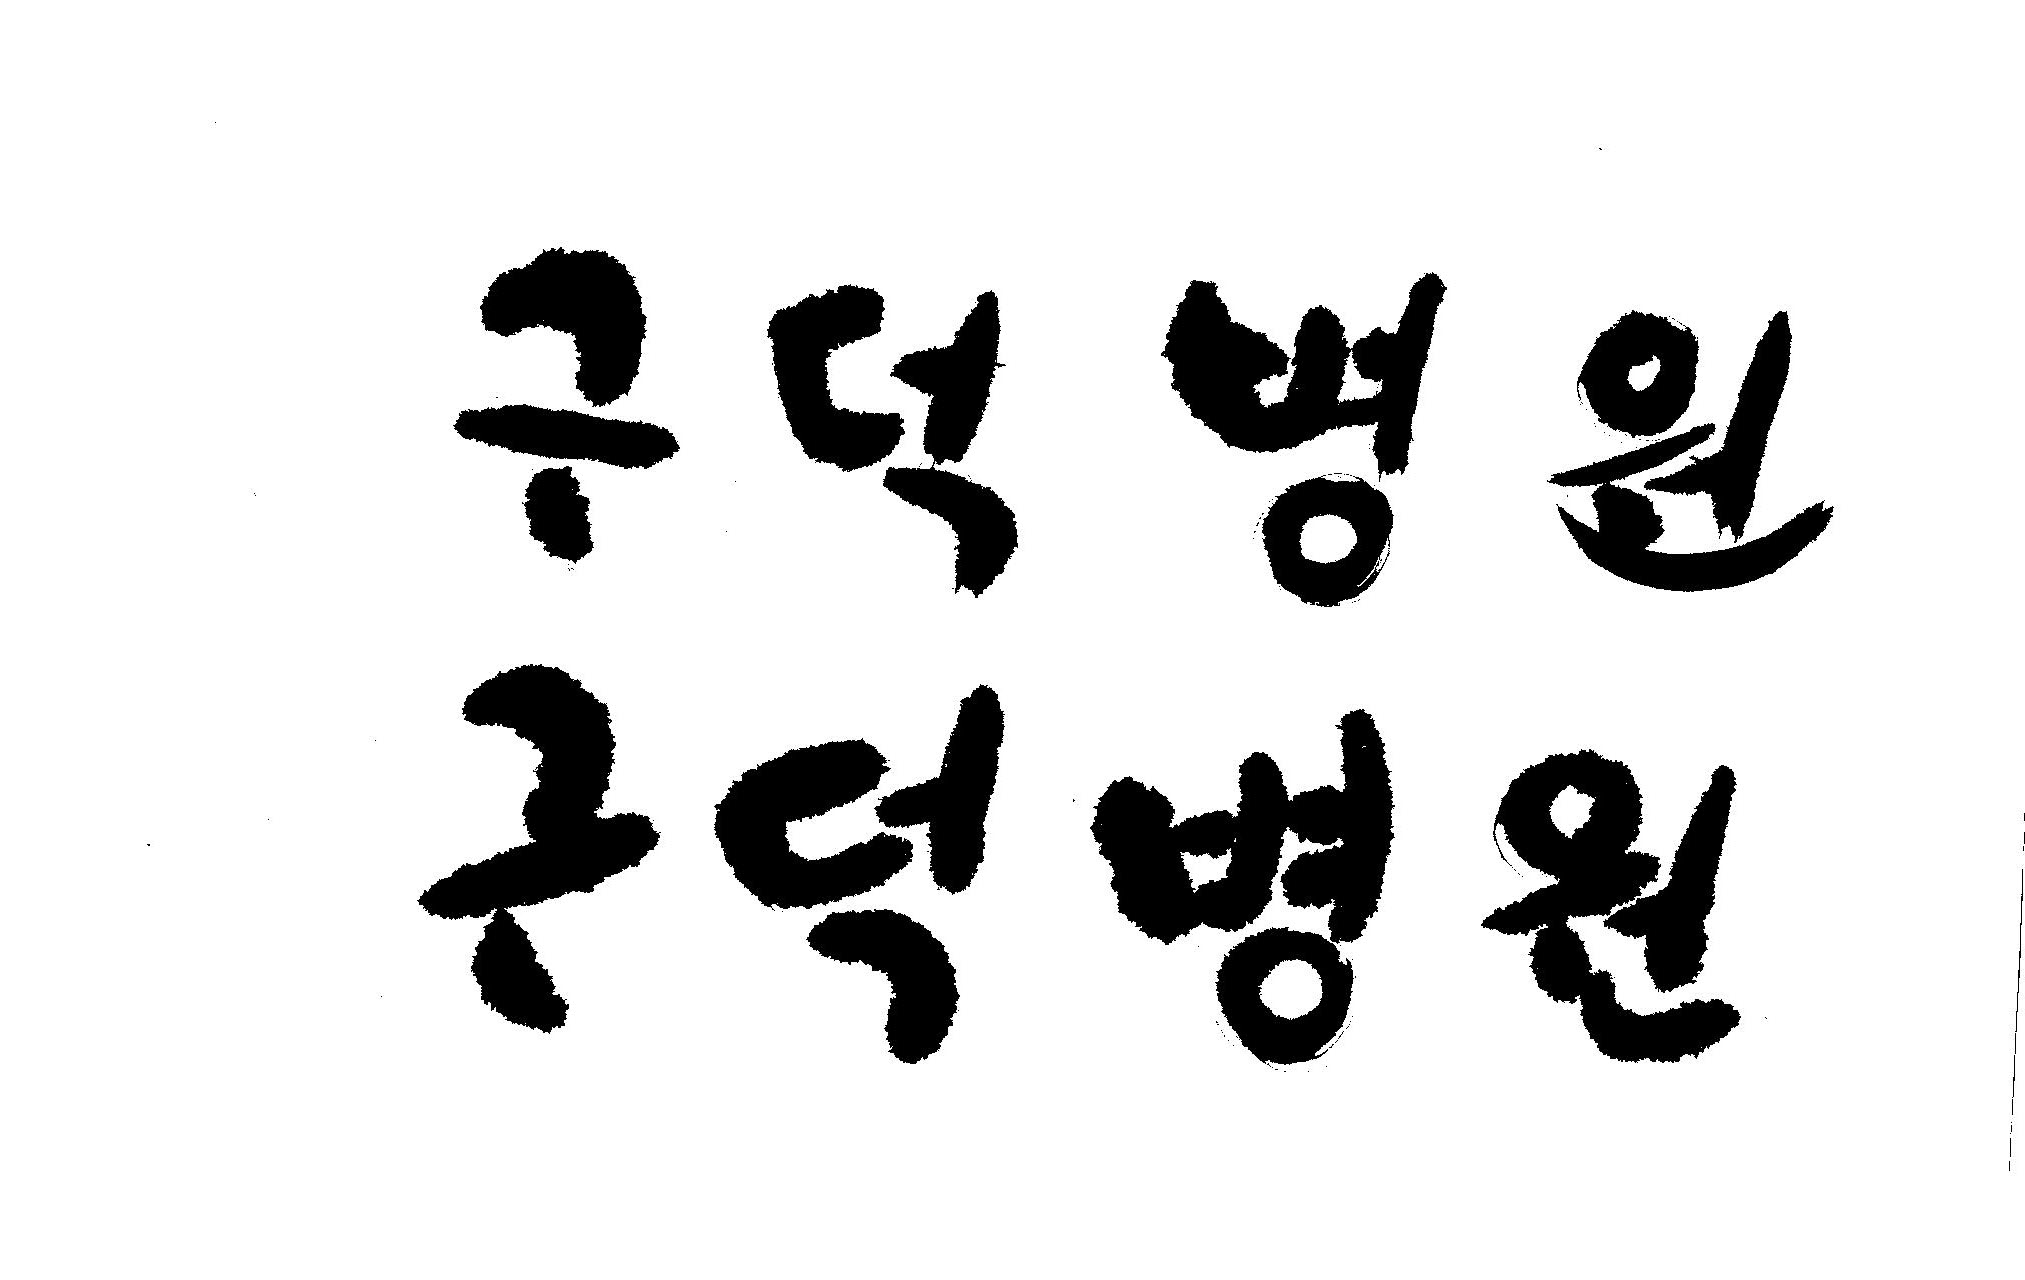 구덕병원
구덕병원